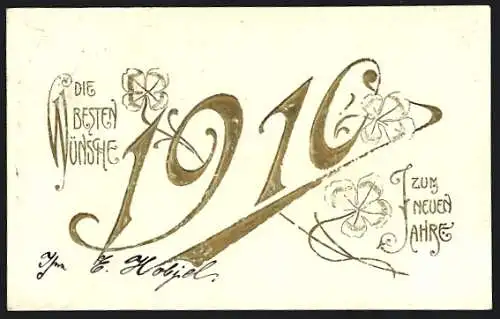 DIE
BESTEN
WÜNSCHE
1910
ZUM
NEUEN
JAHRE
E.